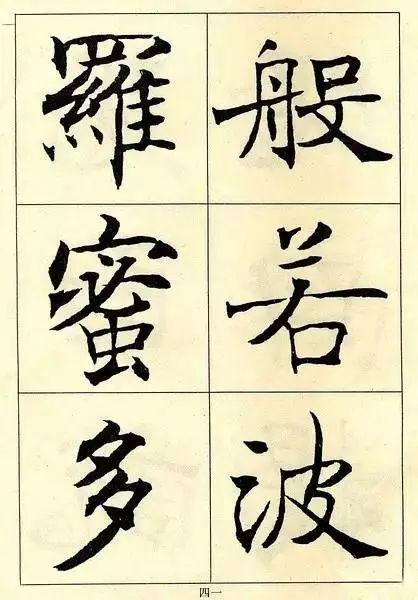 般若波
羅蜜多
四一